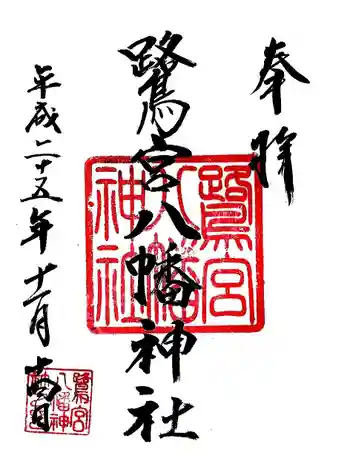 奉拝
鷺宮八幡神社
平成二十五年十一月
鷺宮
八幡
神社
鷺宮
八幡神